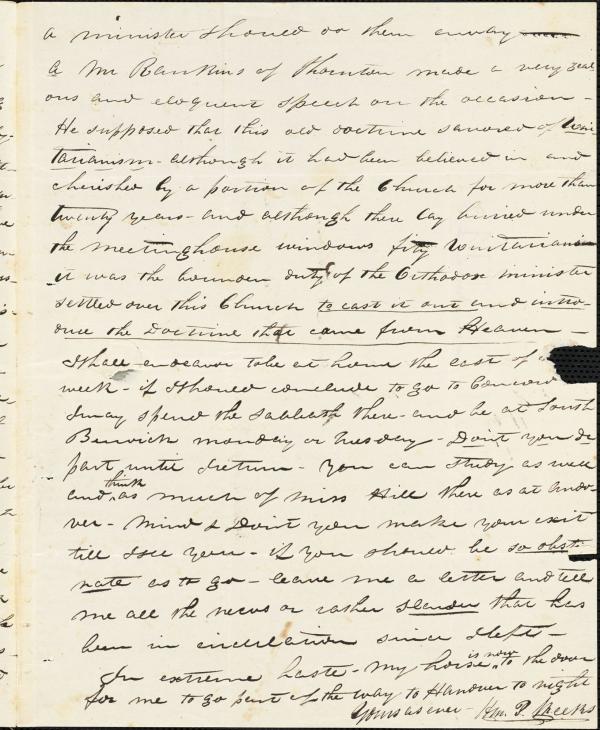 a minister should do them away
A Mr Rankins of Thornton made a very zeal
ous and eloquent speech on the occasion -
He supposed that this old doctrine savored of Uni
tarianism - although it had been believed in and
cherished by a portion of the Church for more than
twenty years - and although there lay buried under
the meetinghouse windows fifty Unitarians
it was the bounden duty of the Orthodox minister
settled over this Church to cast it out and intro-
duce the Doctrine that came from Heaven -
I shall endeavor to be at home the last of
week - if I should conclude to go to Concord
I may spend the Sabbath there - and be at South
Berwick monday or Tuesday - Don't you de
part until I return - You can study as well
and think as much of miss Hill there as at Ando-
ver - Mind & Don't you make your exit
till I see you - if you should be so obsti-
nate as to go - leave me a letter and tell
me all the news or rather slander that has
been in circulation since I left -
In extreme haste - My horse is now to the door
for me to go part of the way to Hanover to night
Yours as ever - Wm. P.